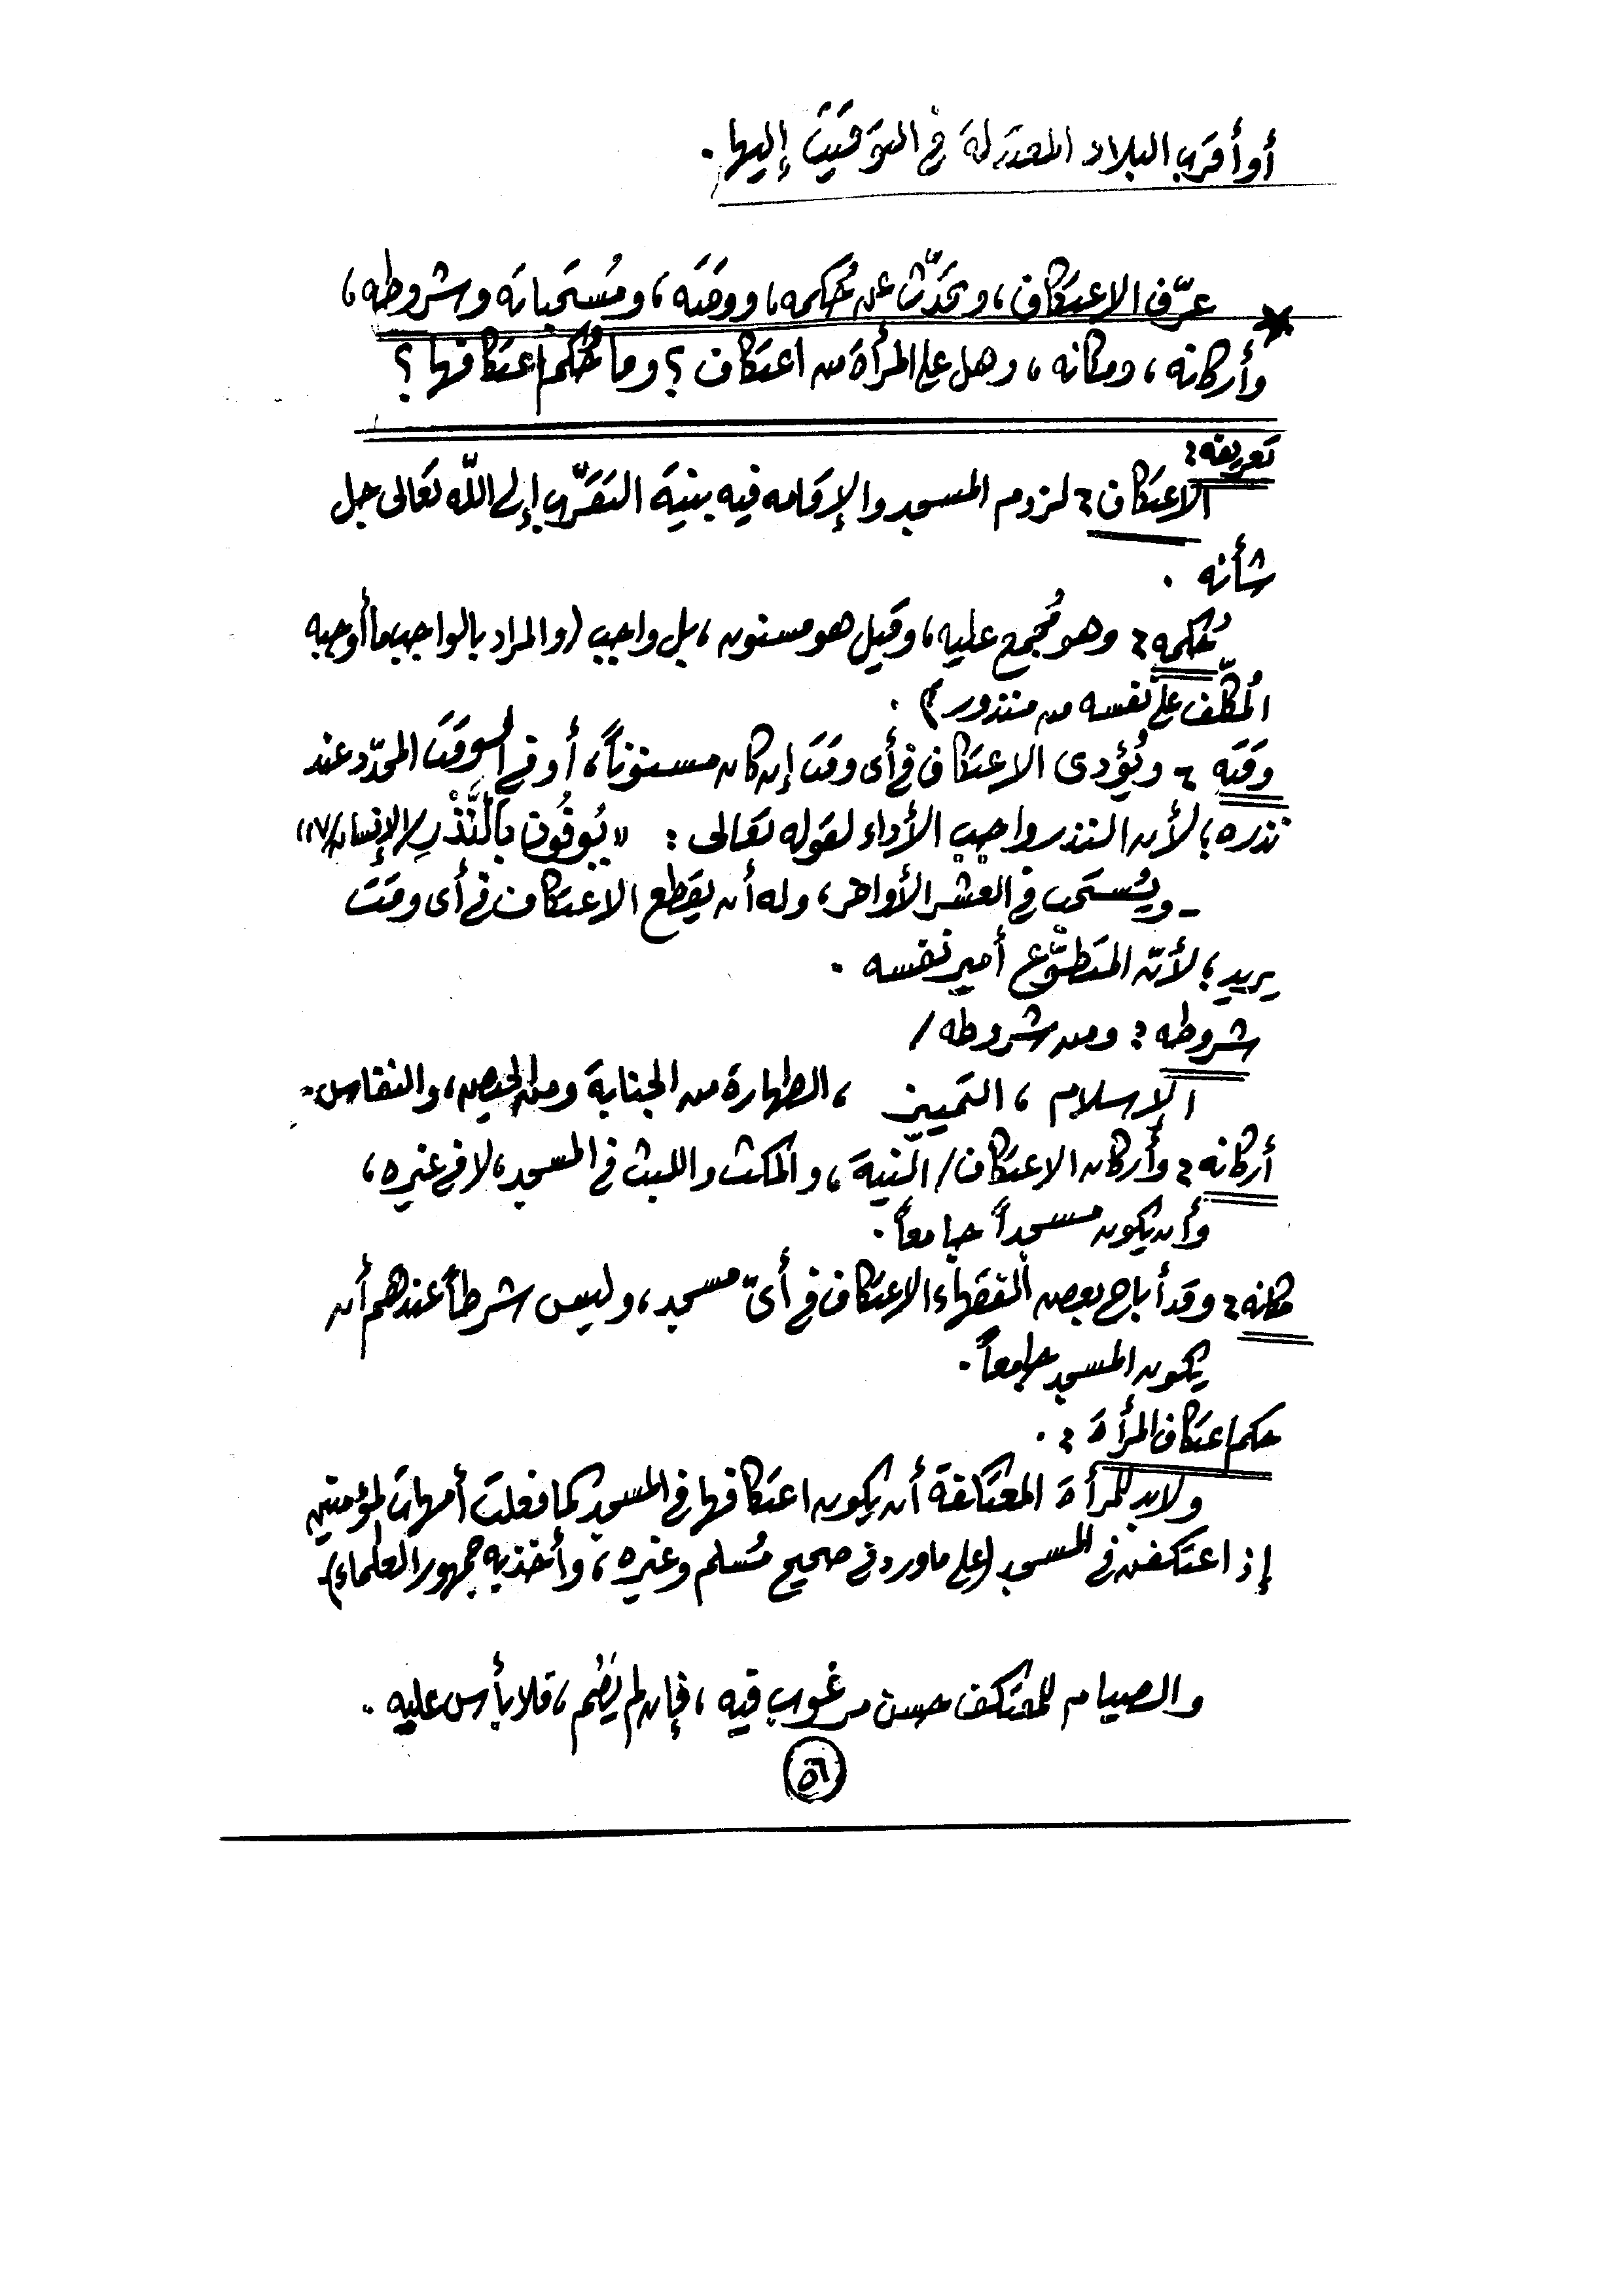 أو أقرب البلاد المعتدلة في التوقيت إليها .
* عرّف الاعتكاف، وتحدَّث عن حُكمه، ووقته، ومُستحباته وشروطه،
وأركانه، ومكانه، وهل على المرأة من اعتكاف؟ وما حُكم اعتكافها؟
تعريفه:
الاعتكاف: لزوم المسجد والإقامه فيه بنية التقرّب إلى اللّه تعالى جل
شأنه .
حُكمه: وهو مُجمع عليه، وقيل هو مسنون، بل واجب (والمراد بالواجب ما أوجبه
المُكلّف على نفسه من منذور) .
وقته - ويُؤدى الاعتكاف في أى وقت إن كان مسنوناً، أو في الوقت المحدّد عند
نذره؛ لأن النذر واجب الأداء لقوله تعالى: «يُوفُون بالنَّذْرِ/الإنسان/٧»
- ويُستحب في العشر الأواخر، وله أن يقطع الاعتكاف في أى وقت
يريد؛ لأنّ المتطوّع أمير نفسه .
شروطه: ومن شروطه /
الإسلام، التمييز، الطهارة من الجنابة ومن الحيض، والنفاس.
أركانه: وأركان الاعتكاف/ النّية، والمكث واللبث في المسجد، لا في غيره،
وأن يكون مسجداً جامعاً .
مكانه: وقد أباح بعض الفقهاء الاعتكاف في أىّ مسجد، وليس شرطاً عندهم أن
يكون المسجد جامعاً .
حكم اعتكاف المرأة : .
ولابد للمرأة المعتكفة أن يكون اعتكافها في المسجد كما فعلت أمهات المؤمنين
إذ اعتكفن في المسجد (على ما ورد في صحيح مُسلم وغيره، وأخذ به جمهور العلماء).
والصيام للمعتكف حسن مرغوب فيه، فإن لم يَصُم، فلا بأس عليه .
٥٦